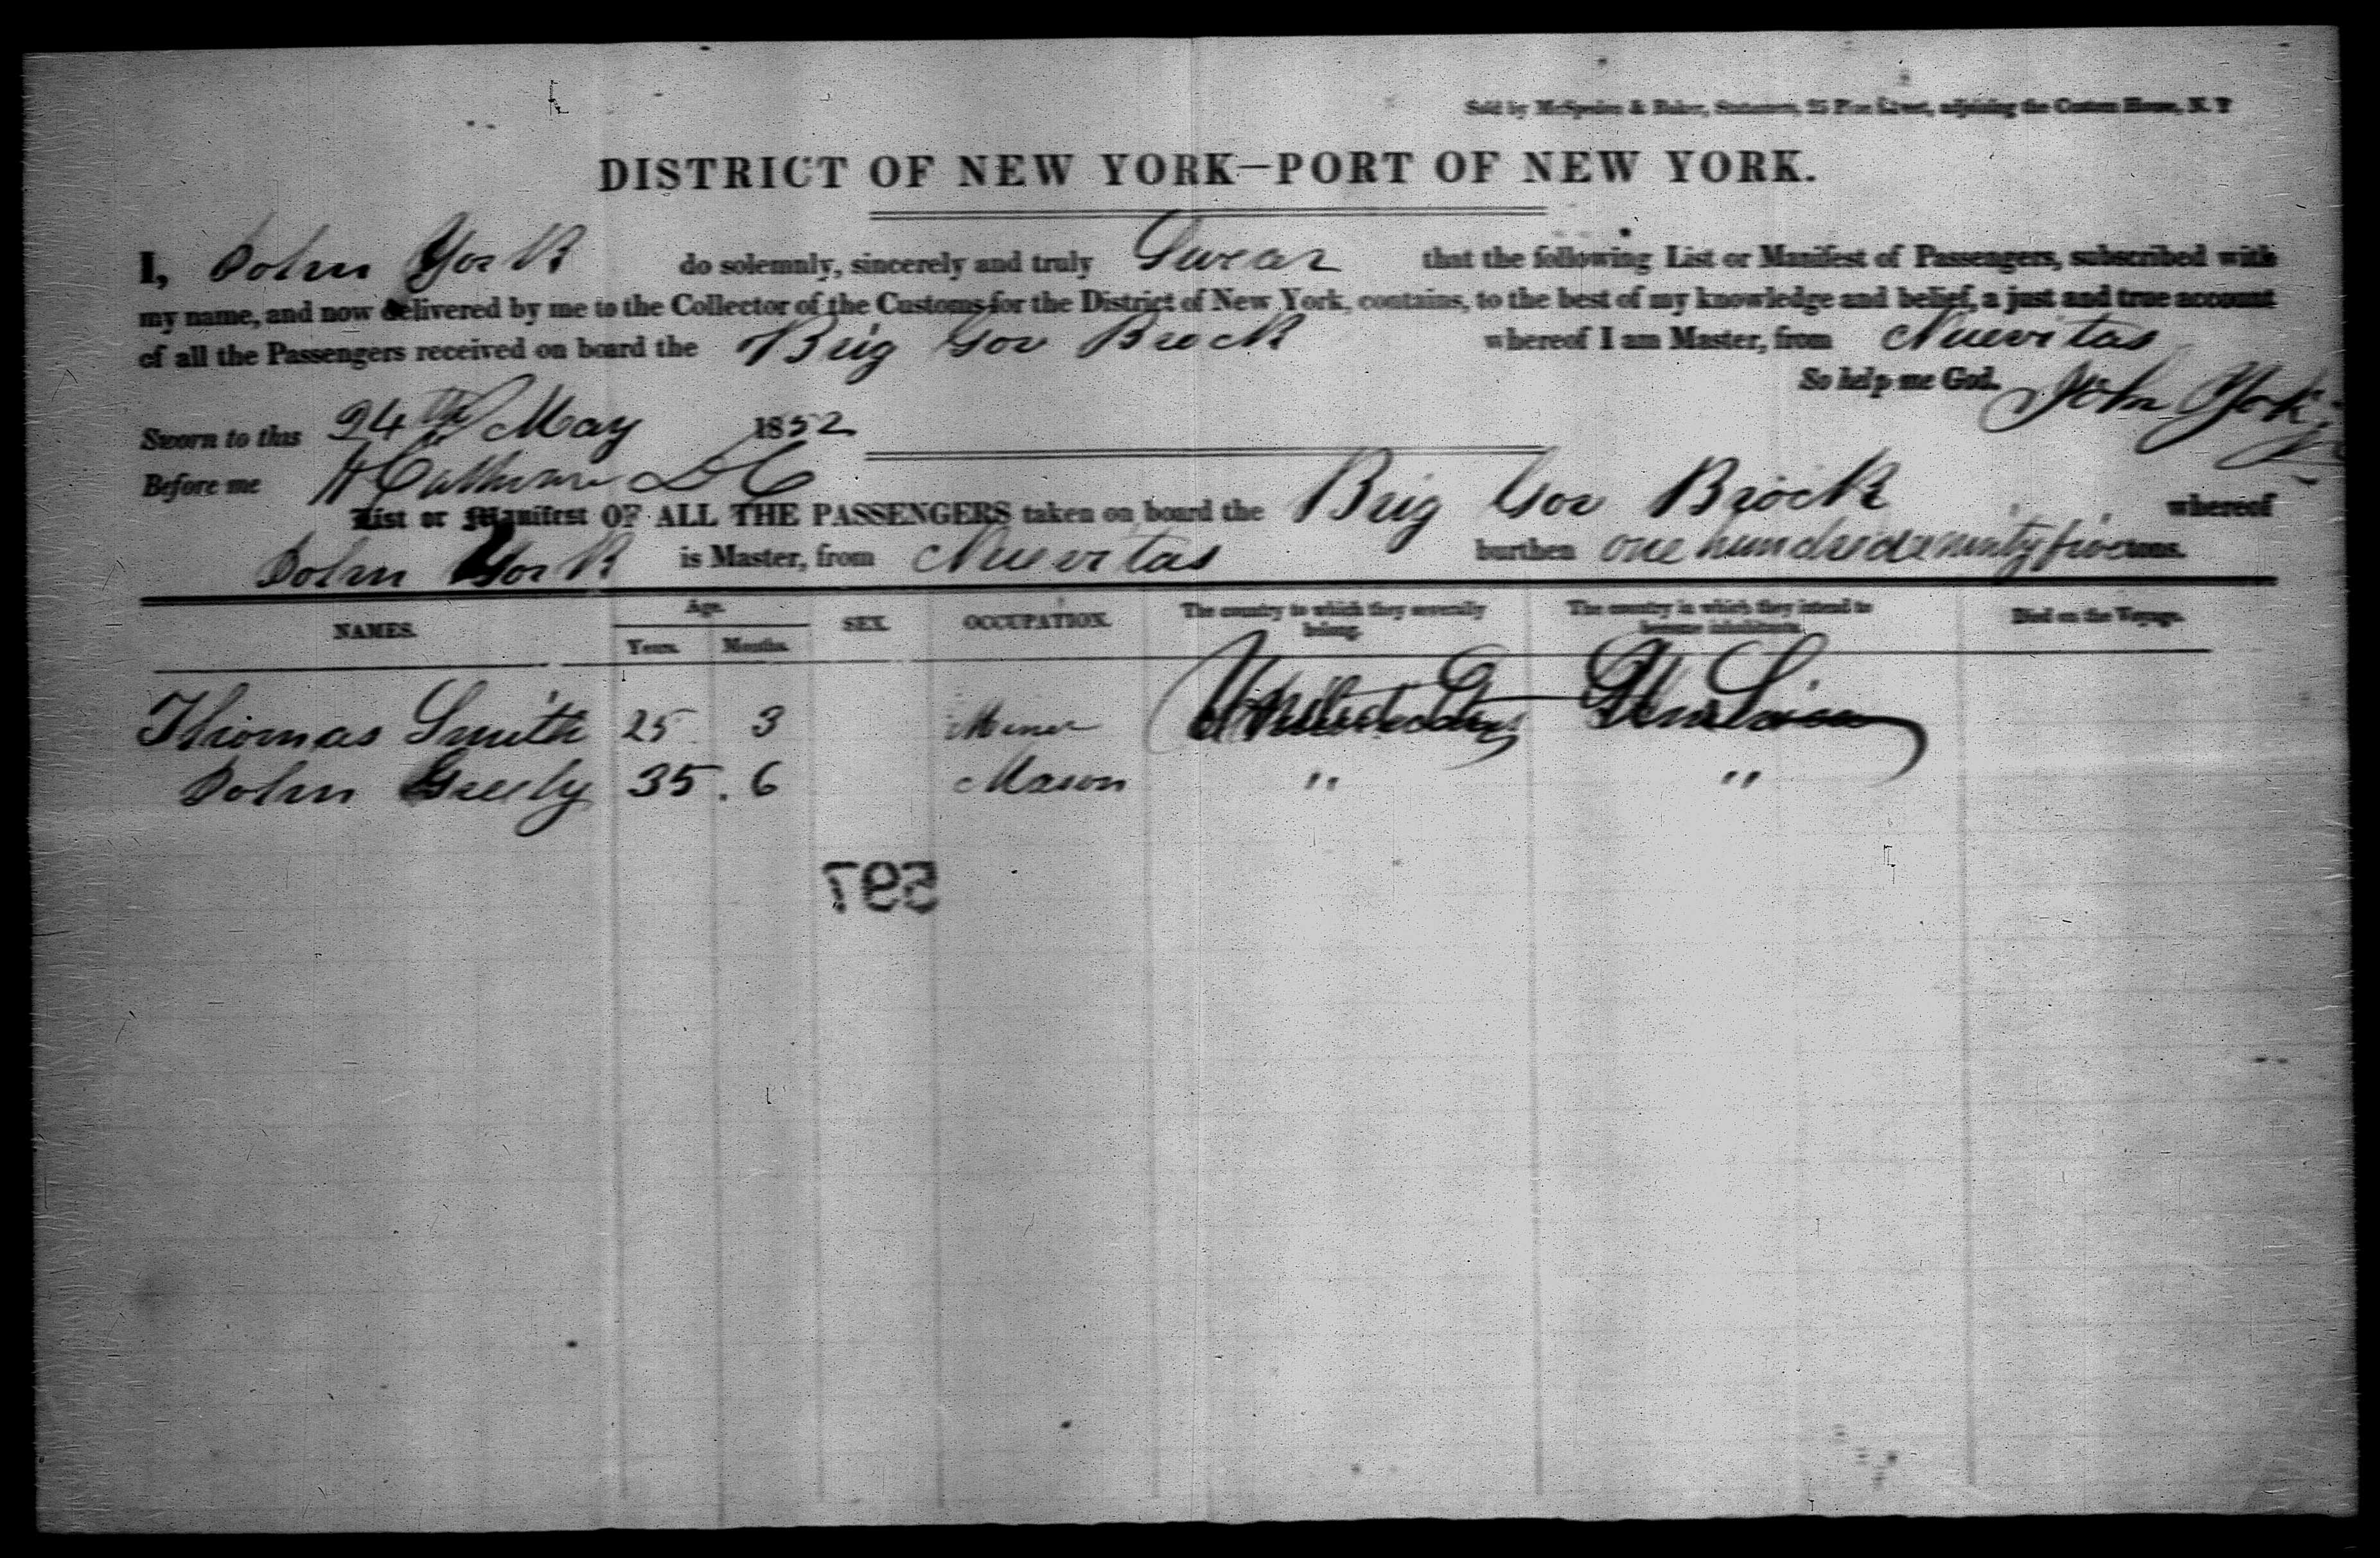 Sold by McSpedon & Baker, Stationers, 25 Pine Street, adjoining the Custom House, N. Y
DISTRICT OF NEW YORK—PORT OF NEW YORK.
I, John York do solemnly, sincerely and truly Swear that the following List or Manifest of Passengers, subscribed with
my name, and now delivered by me to the Collector of the Customs for the District of New York, contains, to the best of my knowledge and belief, a just and true account
of all the Passengers received on board the Brig Gov Brock whereof I am Master, from Nuevitas
So help me God. John York
Sworn to this 24th May 1852
Before me
List or Manifest OF ALL THE PASSENGERS taken on board the Brig Gov Brock whereof
John York is Master, from Nuevitas burthen one hundred & ninty five tons.
NAMES. Age. SEX. OCCUPATION. The country to which they severally belong. The country in which they intend to become inhabitants. Died on the Voyage.
Years. Months.
Thomas Smith 25 3
John Greely 35. 6 Mason " "
597